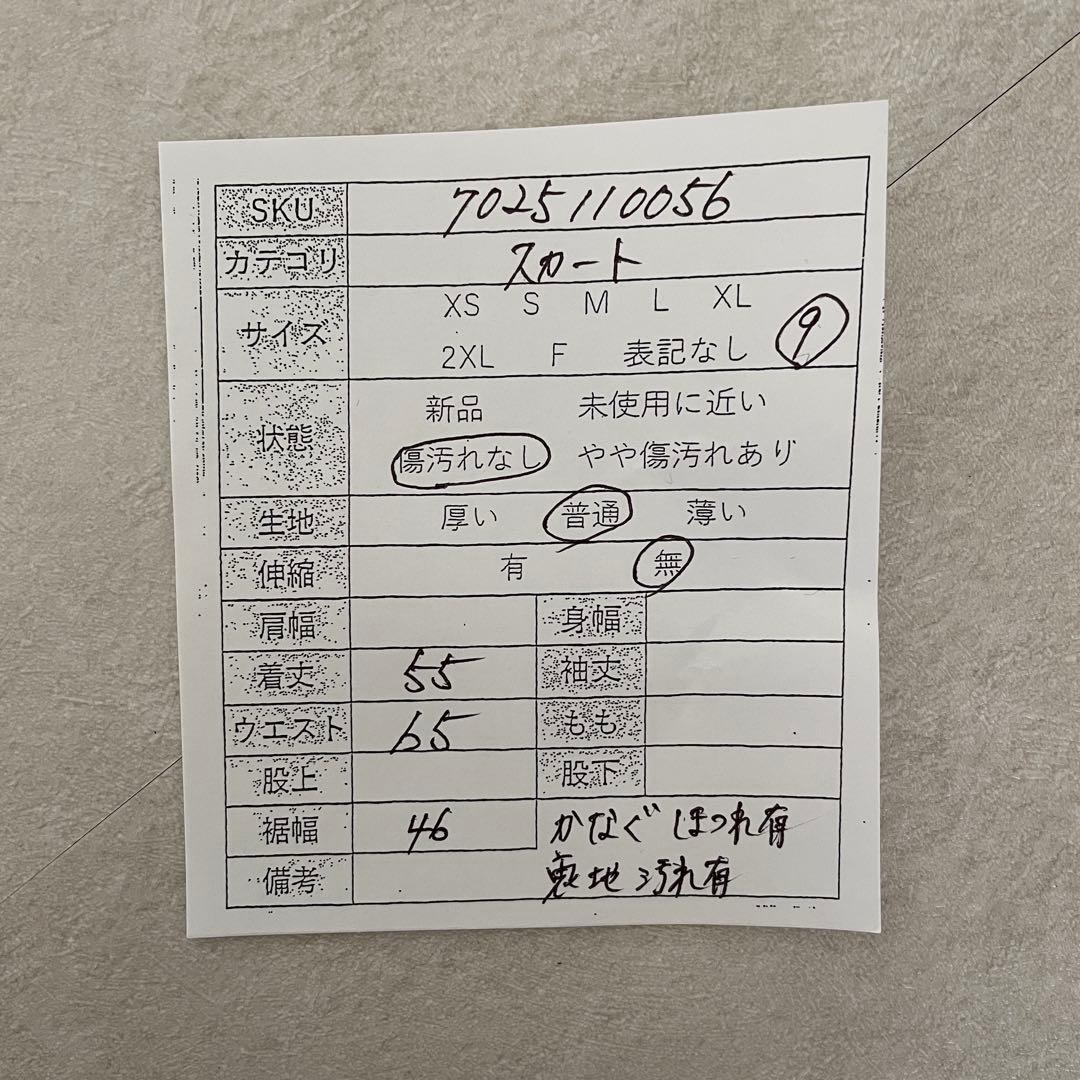 SKU 7025110056
カテゴリ スカート
サイズ XS S M L XL
2XL F 表記なし 9
状態 新品 未使用に近い
傷汚れなし やや傷汚れあり
生地 厚い 普通 薄い
伸縮 有 無
肩幅 身幅
着丈 55 袖丈
ウエスト 65 もも
股上 股下
裾幅 46 かなぐ ほつれ有
備考 裏地 汚れ有